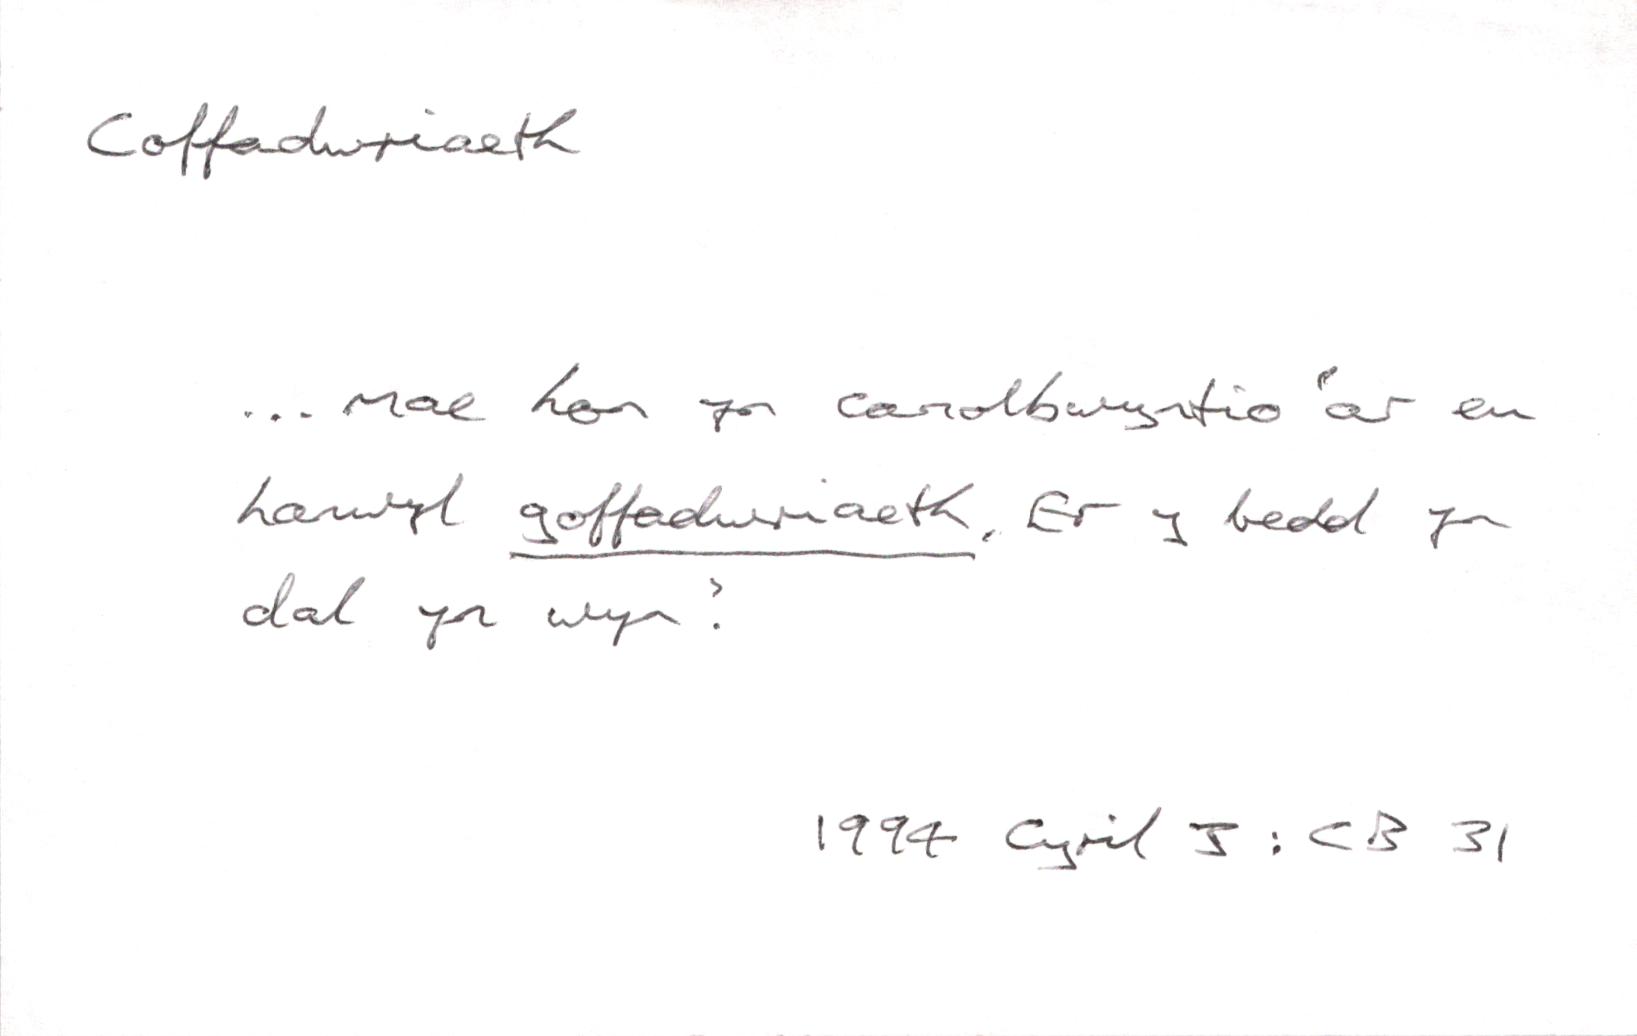 Coffadwriaeth
... mae hon yn canolbwyntio 'ar eu
hannwyl goffadwriaeth. Er y bedd yn
dal yn wyn?
1994 Cyril J : CB 31